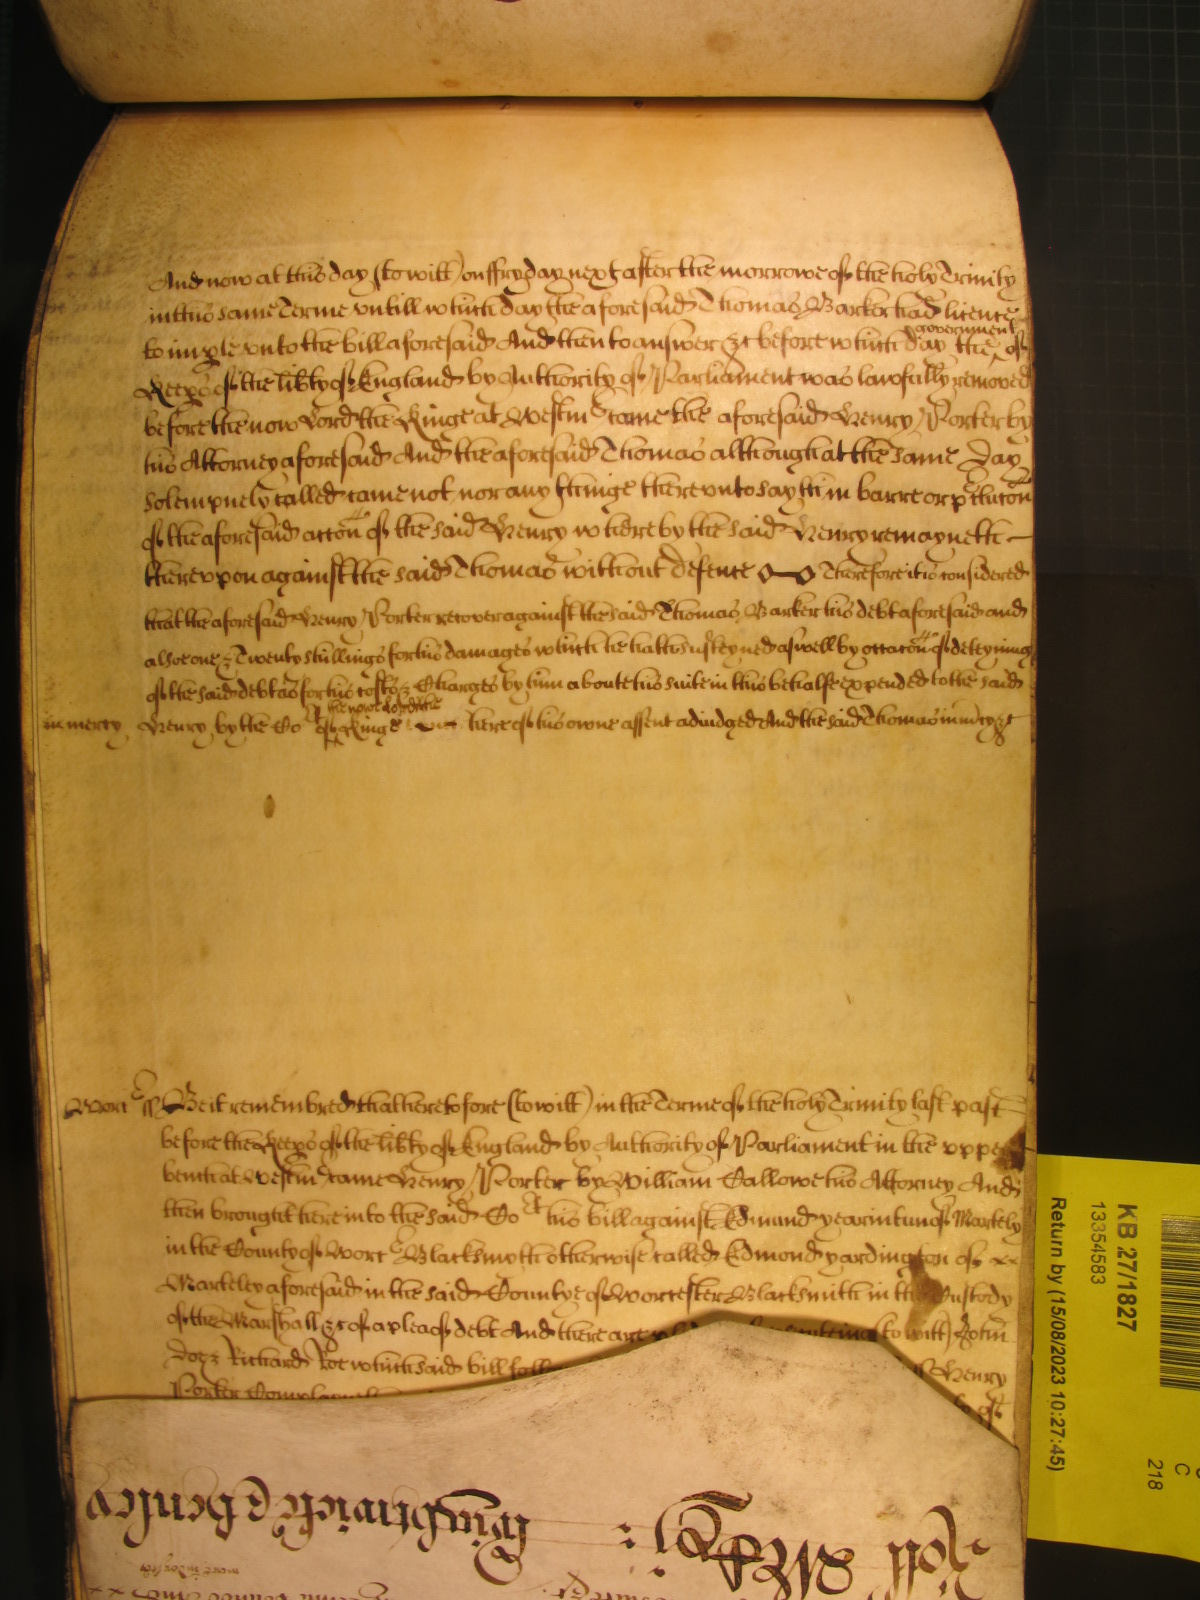 And now at this day (to witt) on ffryday next after the morrowe of the holy Trinity
in this same Terme untill which day the aforesaid Thomas Barker had licence
to imple unto the bill aforesaid And then to answer &c before which day the government of
Keeps of the libty of England by Authority of Parliament was lawfully removed
before the now Lord the Kinge at Westm came the aforesaid Henry Porter by
his Attorney aforesaid And the aforesaid Thomas although at the same day
solempnely called came not nor any thinge thereunto sayth in barre or p clucon
of the aforesaid accon of the said Henry whereby the said Henry remayneth
thereupon against the said Thomas without defence Therefore it is considered
that the aforesaid Henry Porter recover against the said Thomas Barker his debt aforesaid and
alsoe one & Twenty shillings for his damages which he hath susteyned aswell by occacon of deteyning
of the said debt as for his costs & Charges by him about his suite in this behalfe expended to the said
in mercy Henry by the Co t of the now Lord the Kinge here of his owne assent adiudged And the said Thomas in mcy &c
Worc ss Be it remembred that heretofore (to witt) in the Terme of the holy Trinity last past
before the Keeps of the libty of England by Authority of Parliament in the upper
bench at Westm came Henry Porter by William Callowe his Attorney And
then brought here into the said Co t his bill against Edmund yearintun of Martely
in the County of Worc Blacksmyth otherwise called Edmond yardington of
Marteley aforesaid in the said Countye of Worcester Blacksmith in the Custody
of the Marshall &c of a plea of debt And there are to witt) John
Doe & Richard Roe which said bill Henry
Porter
KB 27/1827
13354583
Return by (15/08/2023 10:27:45)
C
218